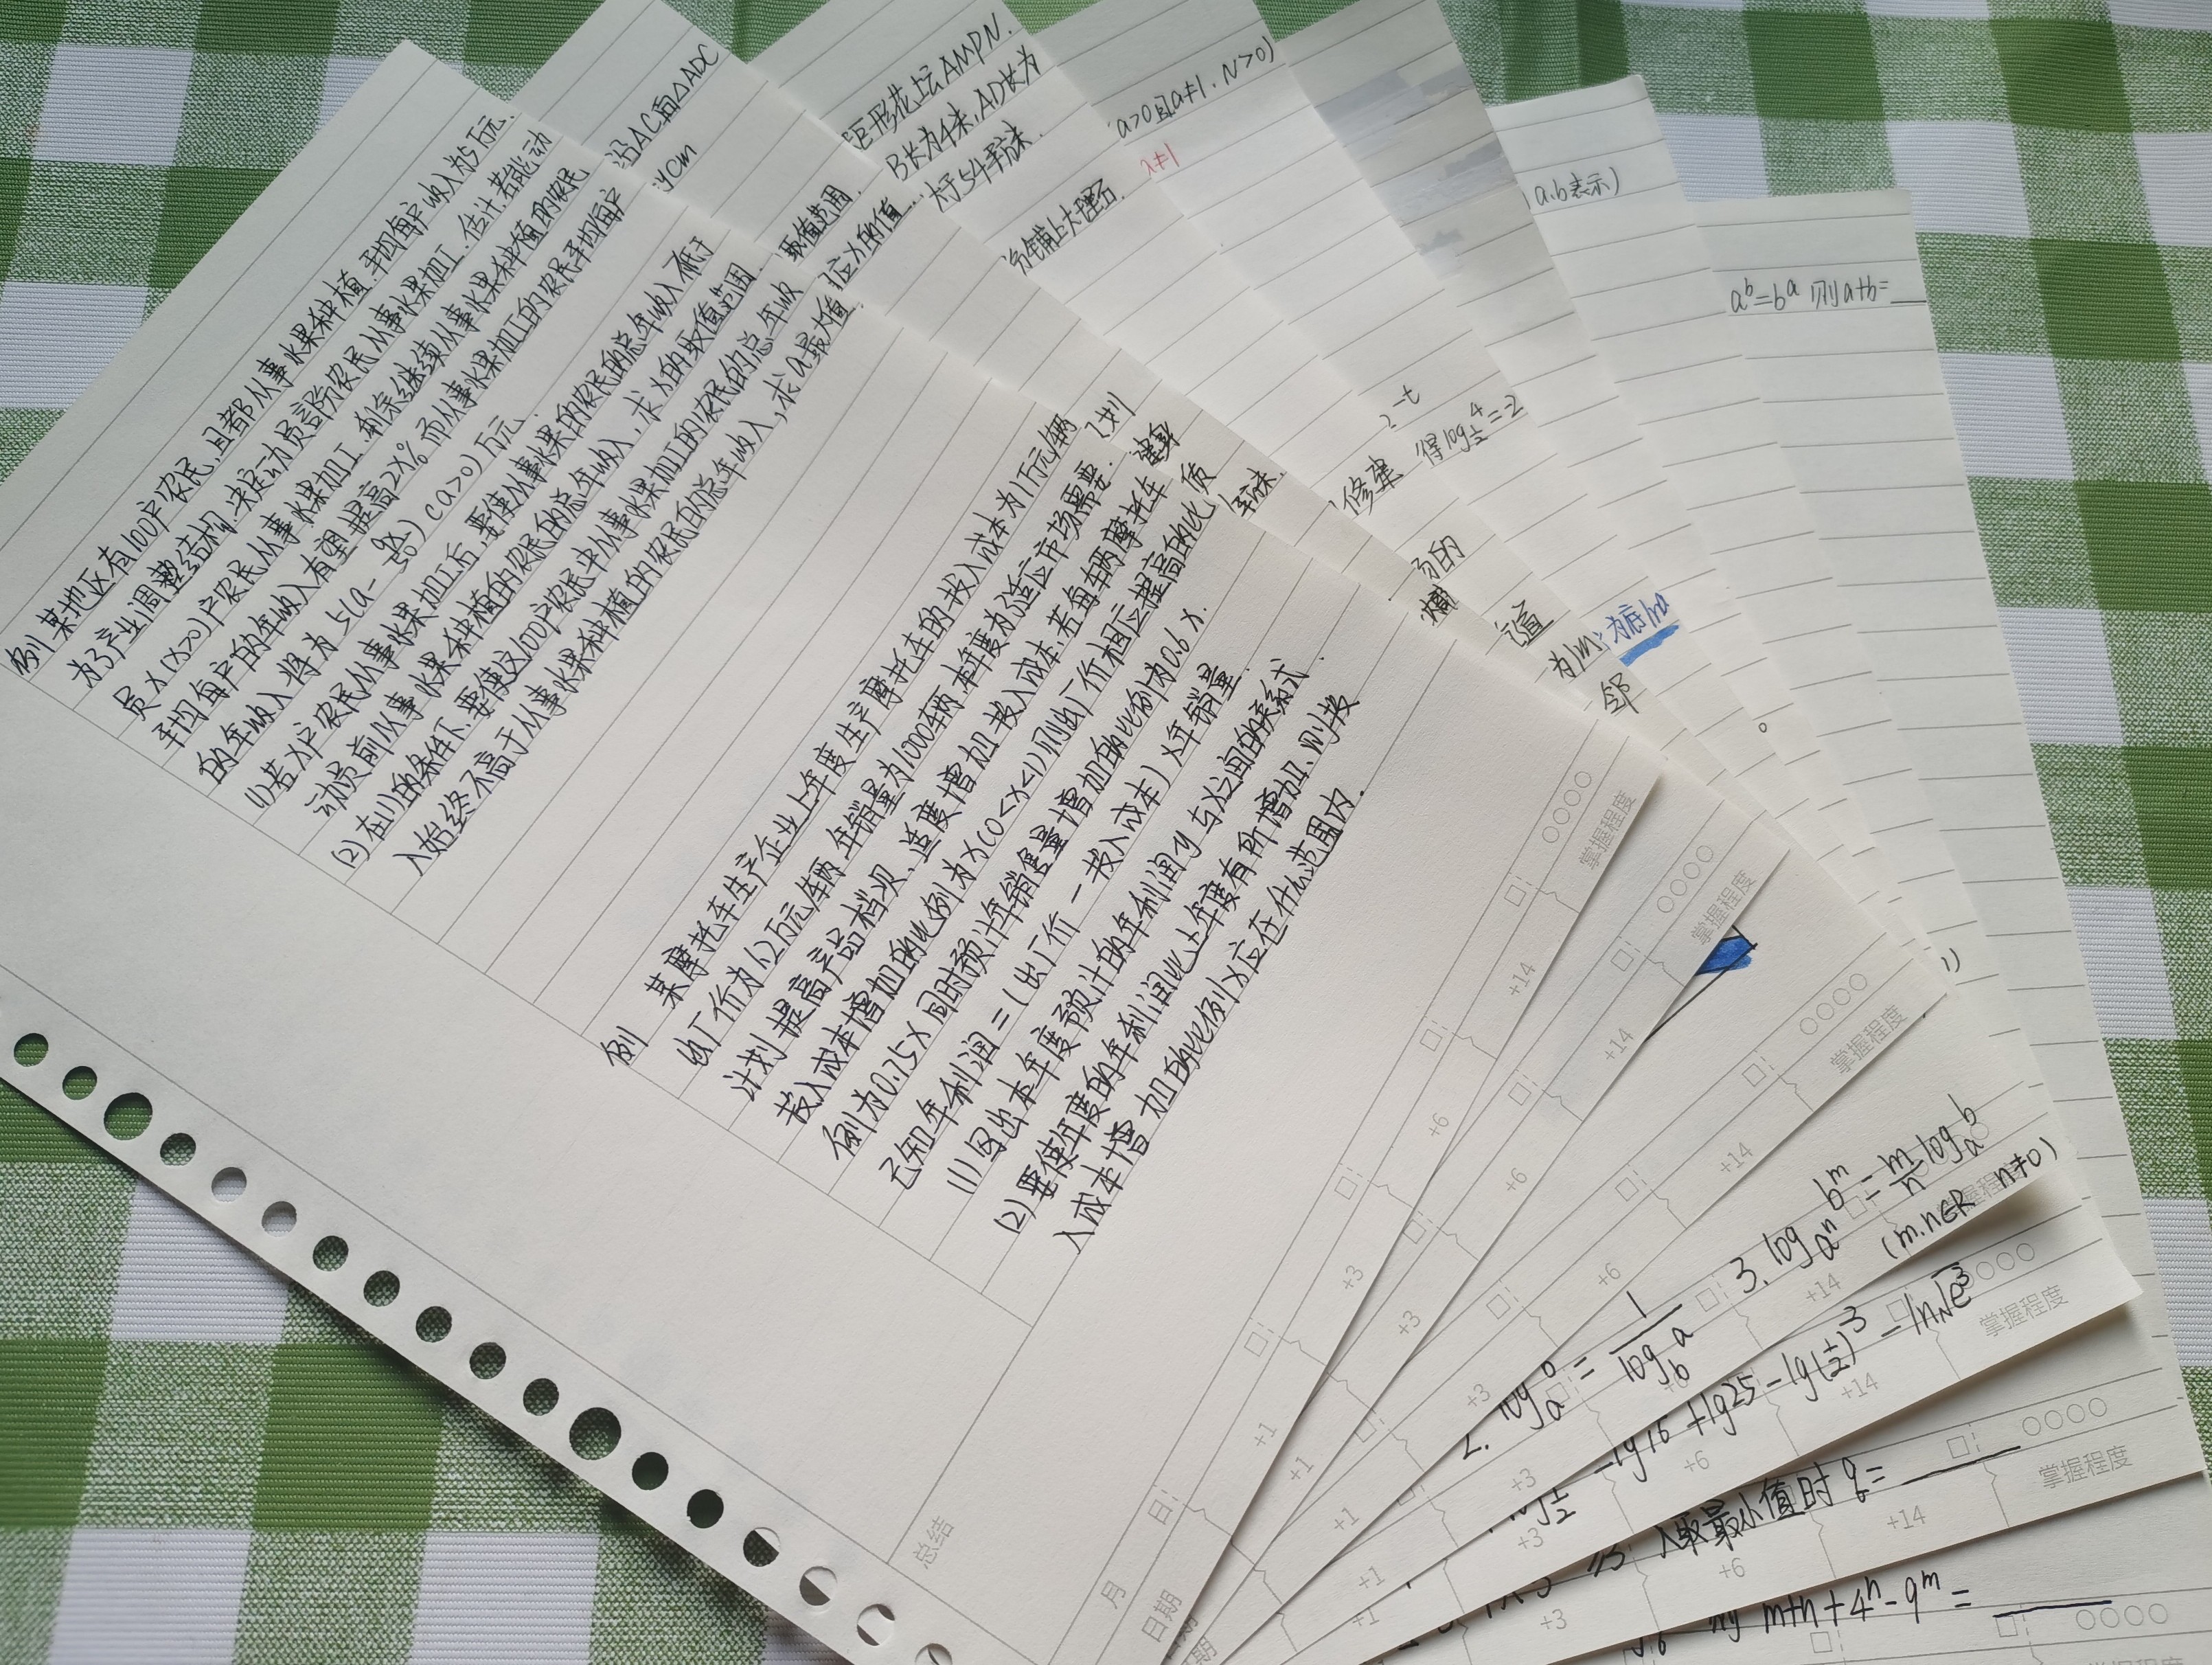 例 某地区有100户农民,且都从事水果种植,平均每户收入为5万元.
为了产业调整结构,决定动员部分农民从事水果加工.估计,若能动
员x(x>0)户农民从事水果加工,剩余继续从事水果种植的农民
平均每户的年收入有望提高2x%,而从事水果加工的农民平均每户
的年收入将为5(a-9x/50)(a>0)万元.
(1)若x户农民从事水果加工后,要使从事水果的农民的总年收入不低于
动员前从事水果种植的农民的总年收入,求x的取值范围.
(2)在(1)的条件下,要使这100户农民中从事水果加工的农民的总年收
入始终不高于从事水果种植的农民的总年收入,求a最大值.
例 某摩托车生产企业上年度生产摩托车的投入成本为1万元/辆
出厂价为1.2万元/辆,年销量为1000辆,本年度为了适应市场需要,
计划提高产品档次,适度增加投入成本.若每辆摩托车
投入成本增加的比例为x(0<x<1)则出厂价相应提高的比
例为0.75x同时预计年销售量增加的比例为0.6x.
已知年利润=(出厂价-投入成本)×年销量.
(1)写出本年度预计的年利润y与x之间的关系式.
(2)要使年度的年利润比上年度有所增加,则投
入成本增加的比例x应在什么范围内.
总结
月 日
日期
+1 +3 +6 +14
掌握程度
沿AC向△ADC
ycm
取值范围
应x的值
矩形花坛AMPN.
B长为4米,AD长为
大于54平方米.
计划
健身
质
平方米.
+1 +3 +6 +14
掌握程度
a>0且a≠1.N>0)
λ≠1
分铺上大理石.
修建
+1 +3 +6 +14
掌握程度
2^-t
得log_1/2 4=-2
道
邻
2. log_a b=1/log_b a 3. log_a^n b^m=m/n log_a b
(m.n∈R n≠0)
+1 +3 +6 +14
掌握程度
为lm;为底lna
-lg16+lg25-lg(1/2)^3-ln√e^3
+1 +3 +6 +14
掌握程度
(a.b表示)
取最小值时
+3 +6 +14
掌握程度
a^b=b^a 则a+b=__
则m+n+4^n-9^m=____
掌握程度